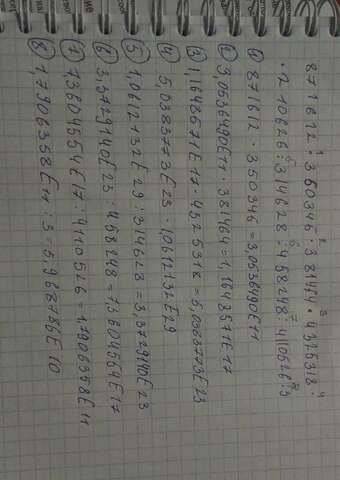 871612 · 360346 : 381464 · 4325318 :
· 210626 : 314628 : 458248 : 4110526 : 3
① 871612 · 350346 = 3,0536490E11
② 3,0536490E11 · 381464 = 1,1648571E17
③ 1,1648571E17 · 4325318 = 5,0383773E23
④ 5,0383773E23 · 1,0612132E29
⑤ 1,0612132E29 : 314628 = 3,3729140E23
⑥ 3,3729140E23 : 458248 = 7,3604554E17
⑦ 7,3604554E17 : 4110526 = 1,7906358E11
⑧ 1,7906358E11 : 3 = 5,968786E10